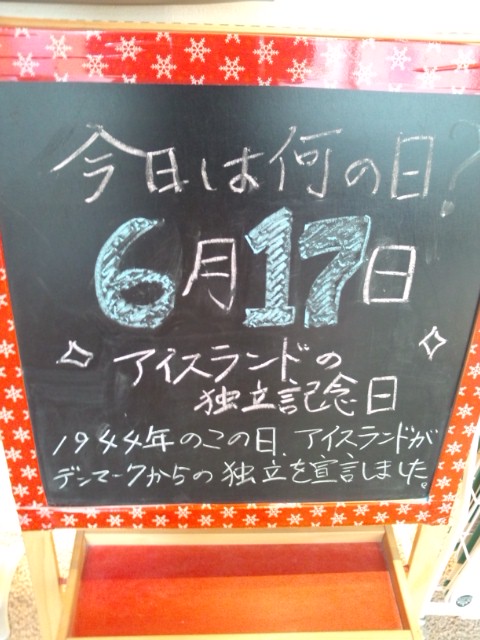 今日は何の日?
6月17日
アイスランドの
独立記念日
1944年のこの日、アイスランドが
デンマークからの独立を宣言しました。